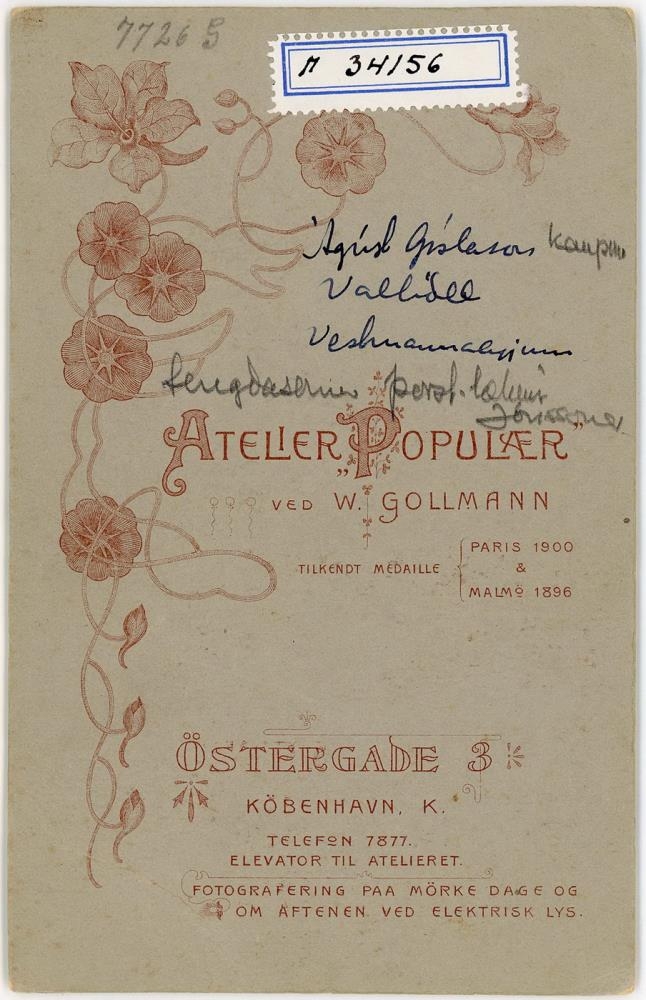 7726 S
M 34156
Ágúst Gíslason kaupm
Valhöll
Vestmannaeyjum
tengdasonur
Jónssonar
ATELIER „POPULÆR”
VED W. GOLLMANN
TILKENDT MEDAILLE
PARIS 1900
&
MALMÖ 1896
ÖSTERGADE 3
KÖBENHAVN, K.
TELEFON 7877.
ELEVATOR TIL ATELIERET.
FOTOGRAFERING PAA MÖRKE DAGE OG
OM AFTENEN VED ELEKTRISK LYS.